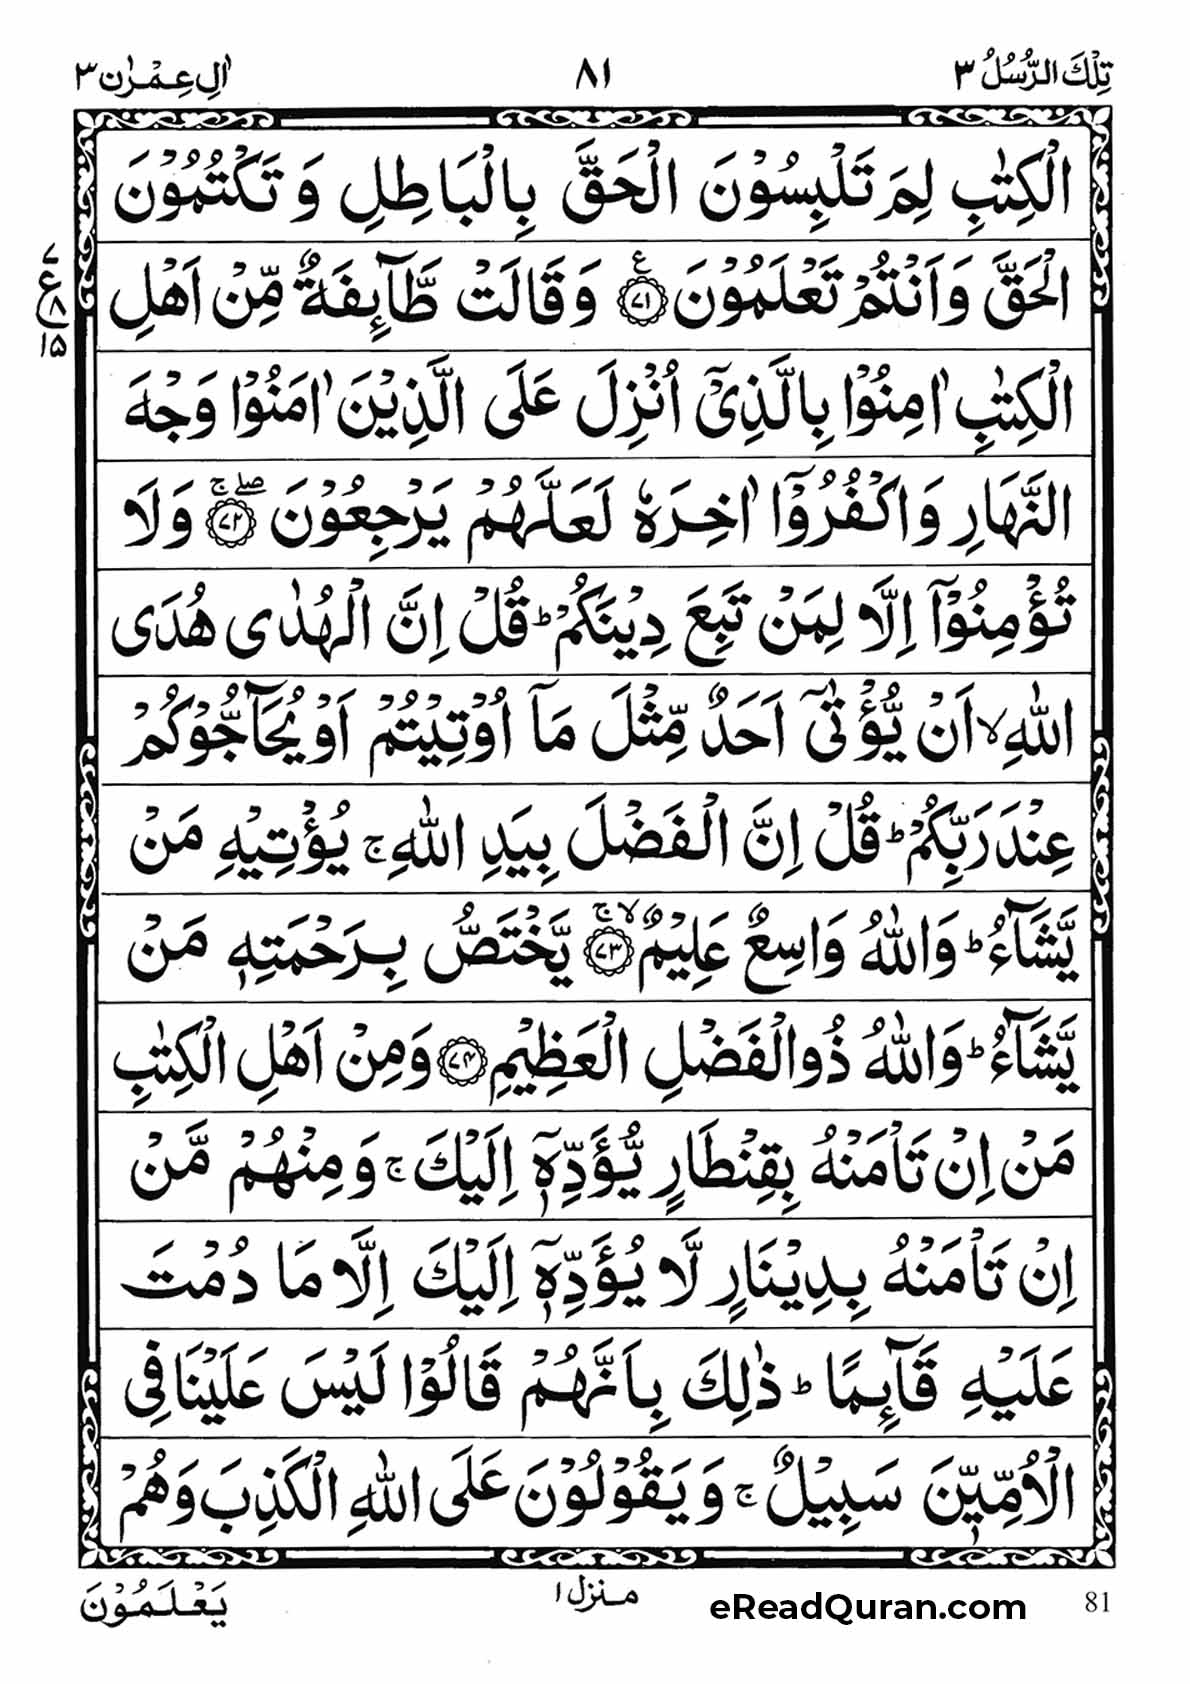 تِلْكَ الرُّسُلُ ٣
٨١
اٰلِ عِمْرٰن ٣
الْكِتٰبِ لِمَ تَلْبِسُوْنَ الْحَقَّ بِالْبَاطِلِ وَ تَكْتُمُوْنَ
الْحَقَّ وَاَنْتُمْ تَعْلَمُوْنَ ۧ﴿٧١﴾ وَقَالَتْ طَّآىِٕفَةٌ مِّنْ اَهْلِ
٧
ع
٨
١٥
الْكِتٰبِ اٰمِنُوْا بِالَّذِیْۤ اُنْزِلَ عَلَى الَّذِیْنَ اٰمَنُوْا وَجْهَ
النَّهَارِ وَاكْفُرُوْۤا اٰخِرَهٗ لَعَلَّهُمْ یَرْجِعُوْنَ ۖۚ﴿٧٢﴾ وَلَا
تُؤْمِنُوْۤا اِلَّا لِمَنْ تَبِعَ دِیْنَكُمْ ؕ قُلْ اِنَّ الْهُدٰى هُدَى
اللّٰهِ ۙ اَنْ یُّؤْتٰۤى اَحَدٌ مِّثْلَ مَاۤ اُوْتِیْتُمْ اَوْ یُحَآجُّوْكُمْ
عِنْدَ رَبِّكُمْ ؕ قُلْ اِنَّ الْفَضْلَ بِیَدِ اللّٰهِ ۚ یُؤْتِیْهِ مَنْ
یَّشَآءُ ؕ وَاللّٰهُ وَاسِعٌ عَلِیْمٌ ۙۚ﴿٧٣﴾ یَّخْتَصُّ بِرَحْمَتِهٖ مَنْ
یَّشَآءُ ؕ وَاللّٰهُ ذُوالْفَضْلِ الْعَظِیْمِ ﴿٧٤﴾ وَمِنْ اَهْلِ الْكِتٰبِ
مَنْ اِنْ تَاْمَنْهُ بِقِنْطَارٍ یُّؤَدِّهٖۤ اِلَیْكَ ۚ وَمِنْهُمْ مَّنْ
اِنْ تَاْمَنْهُ بِدِیْنَارٍ لَّا یُؤَدِّهٖۤ اِلَیْكَ اِلَّا مَا دُمْتَ
عَلَیْهِ قَآىِٕمًا ؕ ذٰلِكَ بِاَنَّهُمْ قَالُوْا لَیْسَ عَلَیْنَا فِی
الْاُمِّیّٖنَ سَبِیْلٌ ۚ وَ یَقُوْلُوْنَ عَلَى اللّٰهِ الْكَذِبَ وَهُمْ
یَعْلَمُوْنَ
منزل ١
eReadQuran.com
81